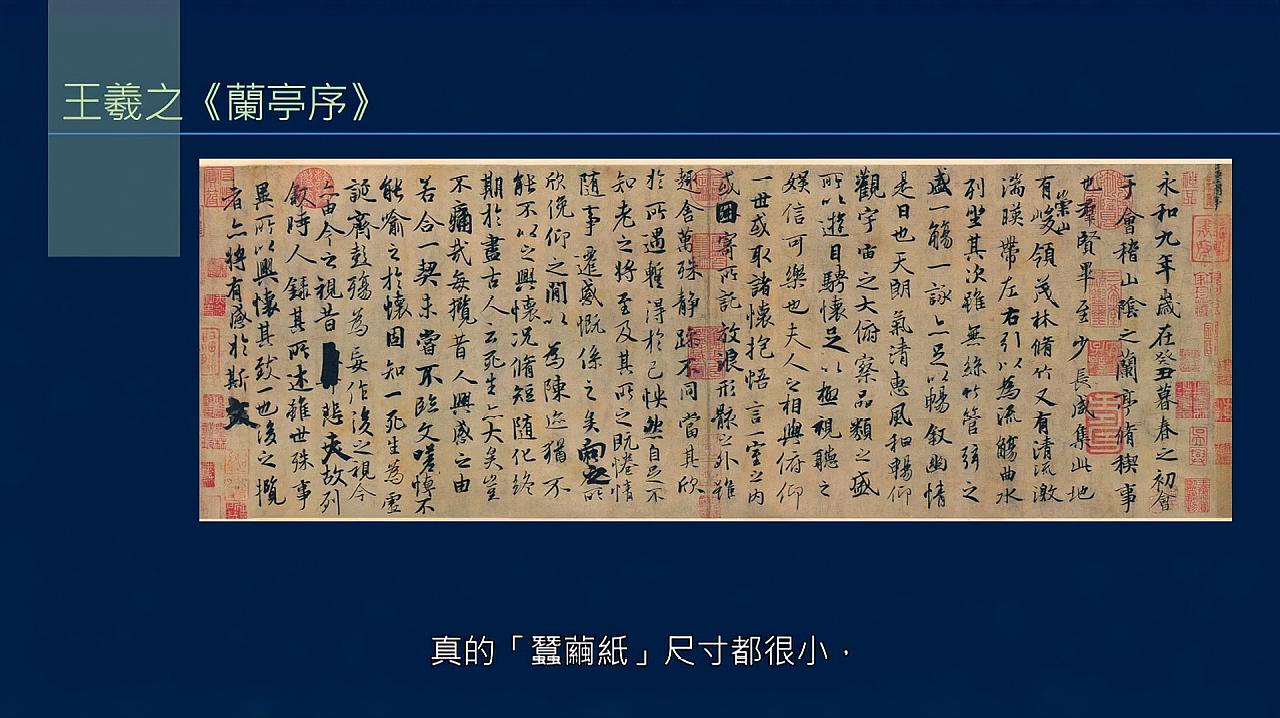 王羲之《蘭亭序》
永和九年歲在癸丑暮春之初會
于會稽山陰之蘭亭脩稧事
也羣賢畢至少長咸集此地
有崇山峻領茂林脩竹又有清流激
湍暎帶左右引以為流觴曲水
列坐其次雖無絲竹管弦之
盛一觴一詠亦足以暢敘幽情
是日也天朗氣清惠風和暢仰
觀宇宙之大俯察品類之盛
所以遊目騁懷足以極視聽之
娛信可樂也夫人之相與俯仰
一世或取諸懷抱悟言一室之內
或因寄所託放浪形骸之外雖
趣舍萬殊靜躁不同當其欣
於所遇暫得於己怏然自足不
知老之將至及其所之既惓情
隨事遷感慨係之矣向之所
欣俛仰之閒以為陳迹猶不
能不以之興懷況脩短隨化終
期於盡古人云死生亦大矣豈
不痛哉每攬昔人興感之由
若合一契未嘗不臨文嗟悼不
能喻之於懷固知一死生為虛
誕齊彭殤為妄作後之視今
亦由今之視昔悲夫故列
敘時人錄其所述雖世殊事
異所以興懷其致一也後之攬
者亦將有感於斯文
真的「蠶繭紙」尺寸都很小，